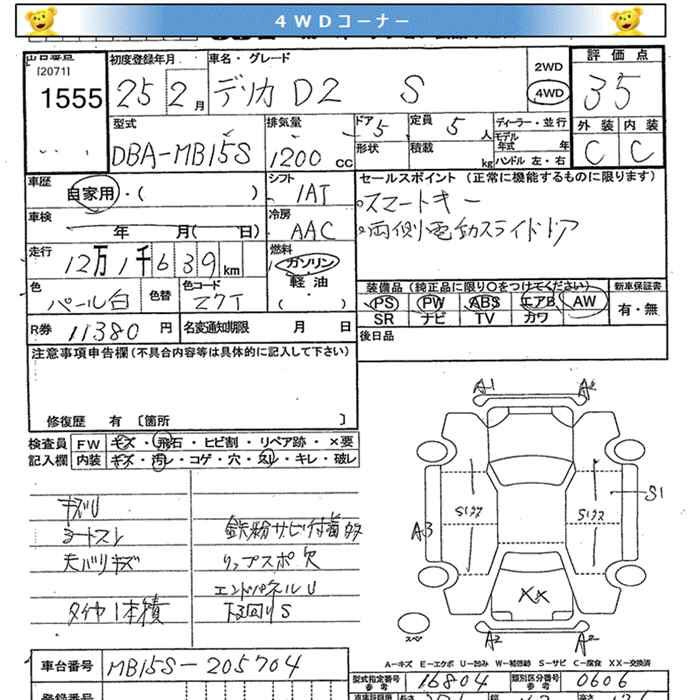 4WDコーナー
出品番号
[2071]
1555
初度登録年月
25 2月
車名・グレード
デリカD2 S
2WD
4WD
評価点
3.5
外装 内装
C C
型式
DBA-MB15S
排気量
1200 cc
ドア 5
形状
定員 5 人
積載 kg
ディーラー・並行
モデル年式 年
ハンドル 左・右
車歴
自家用・( )
シフト
IAT
冷房
AAC
セールスポイント (正常に機能するものに限ります)
・スマートキー
・両側電動スライドドア
車検
年 月( 日)
走行
12万1千639km
燃料
ガソリン
軽油
・( )
色
パール白
色替
色コード
Z7T
装備品 (純正品に限り○をつけてください)
PS PW ABS エアB AW
SR ナビ TV カワ
新車保証書
有・無
R券
11380 円
名変通知期限 月 日
後日品
注意事項申告欄(不具合内容等は具体的に記入して下さい)
修復歴 有 〔箇所 〕
検査員
記入欄
FW キズ・飛石・ヒビ割・リペア跡・×要
内装 キズ・汚レ・コゲ・穴・スレ・キレ・破レ
キズU
シートスレ
天バリキズ
タイヤ1本積
鉄粉サビ付着多々
リップスポ欠
エンドパネルU
下回りS
A1 A2
S1
A3
XX
A2 A2
スペ
A-キズ E-エクボ U-凹み W-補修跡 S-サビ C-腐食 XX-交換済
車台番号
MB15S-205704
型式指定番号
参考
16804
類別区分番号
参考
0606
登録番号